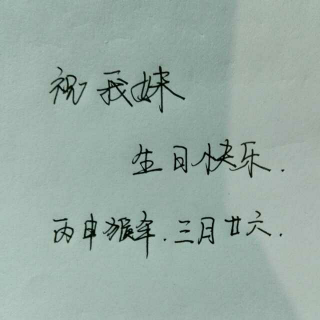 祝我妹
生日快乐.
丙申猴年.三月廿六.